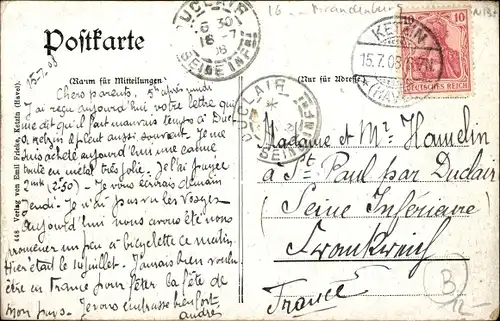 Postkarte
(Raum für Mitteilungen)
(Nur für Adresse)
DUCLAIR
6 30
16 -7
08
SEINE INFRE
KETZIN
15.7.08
(HAVEL)
10
DEUTSCHES REICH
DUCLAIR
SEINE INFRE
16 - Brandenburg
15-7.08
Chers parents, 5h après midi
J'ai reçu aujourd'hui votre lettre qui
me dit qu'il fait mauvais temps à Duc
A Ketzin il pleut aussi souvent. Je me
suis acheté aujourd'hui une canne
toute en métal très jolie. Je l'ai payé
2mk (2.50) - Je vous écrirais demain
Jeudi. Je n'ai pas vu les Vosges
Aujourd'hui nous avons été nous
promener un peu à bicyclette ce matin.
Hier c'était le 14 juillet. J'aurais bien voulu
être en France pour fêter la fête de
mon pays. Je vous embrasse bien fort
André
Madame et Mr Hamelin
à St Paul par Duclair
(Seine Inférieure)
Frankreich
France
B
12-
448 Verlag von Emil Fricke, Ketzin (Havel).